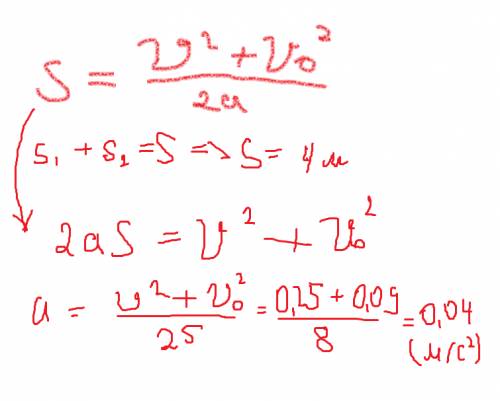 S = (v² + v₀²) / 2a
S₁ + S₂ = S => S = 4 м
2aS = v² + v₀²
a = (v² + v₀²) / 2S = (0,25 + 0,09) / 8 = 0,04
(м/с²)